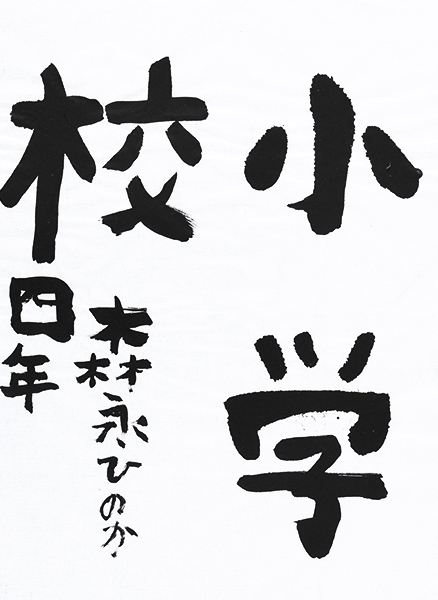 小学
校
四年
森永ひのか